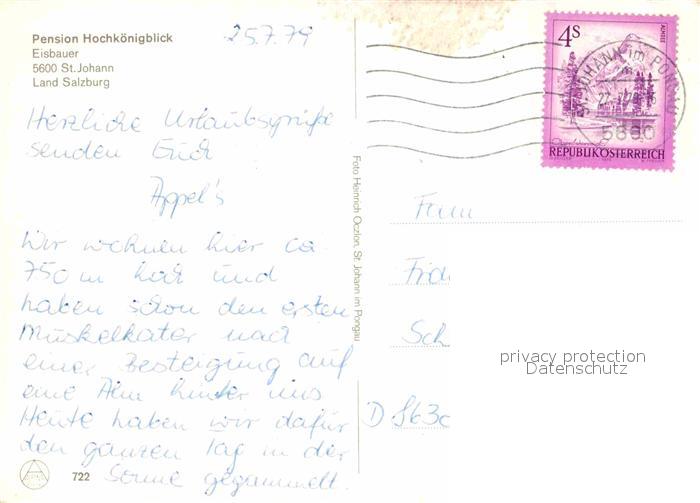 Pension Hochkönigblick
Eisbauer
5600 St. Johann
Land Salzburg
25.7.79
Herzliche Urlaubsgrüße
senden Euch
Appel's
Wir wohnen hier ca.
750 m hoch und
haben schon den ersten
Muskelkater nach
einer Besteigung auf
eine Alm hinter uns
Heute haben wir dafür
den ganzen Tag in der
Sonne gegammelt.
722
Foto Heinrich Oczlon, St. Johann im Pongau
4S
ALMSEE
REPUBLIK ÖSTERREICH
JOHANN im PONGAU
Fam
Sch
privacy protection
Datenschutz
D 563c